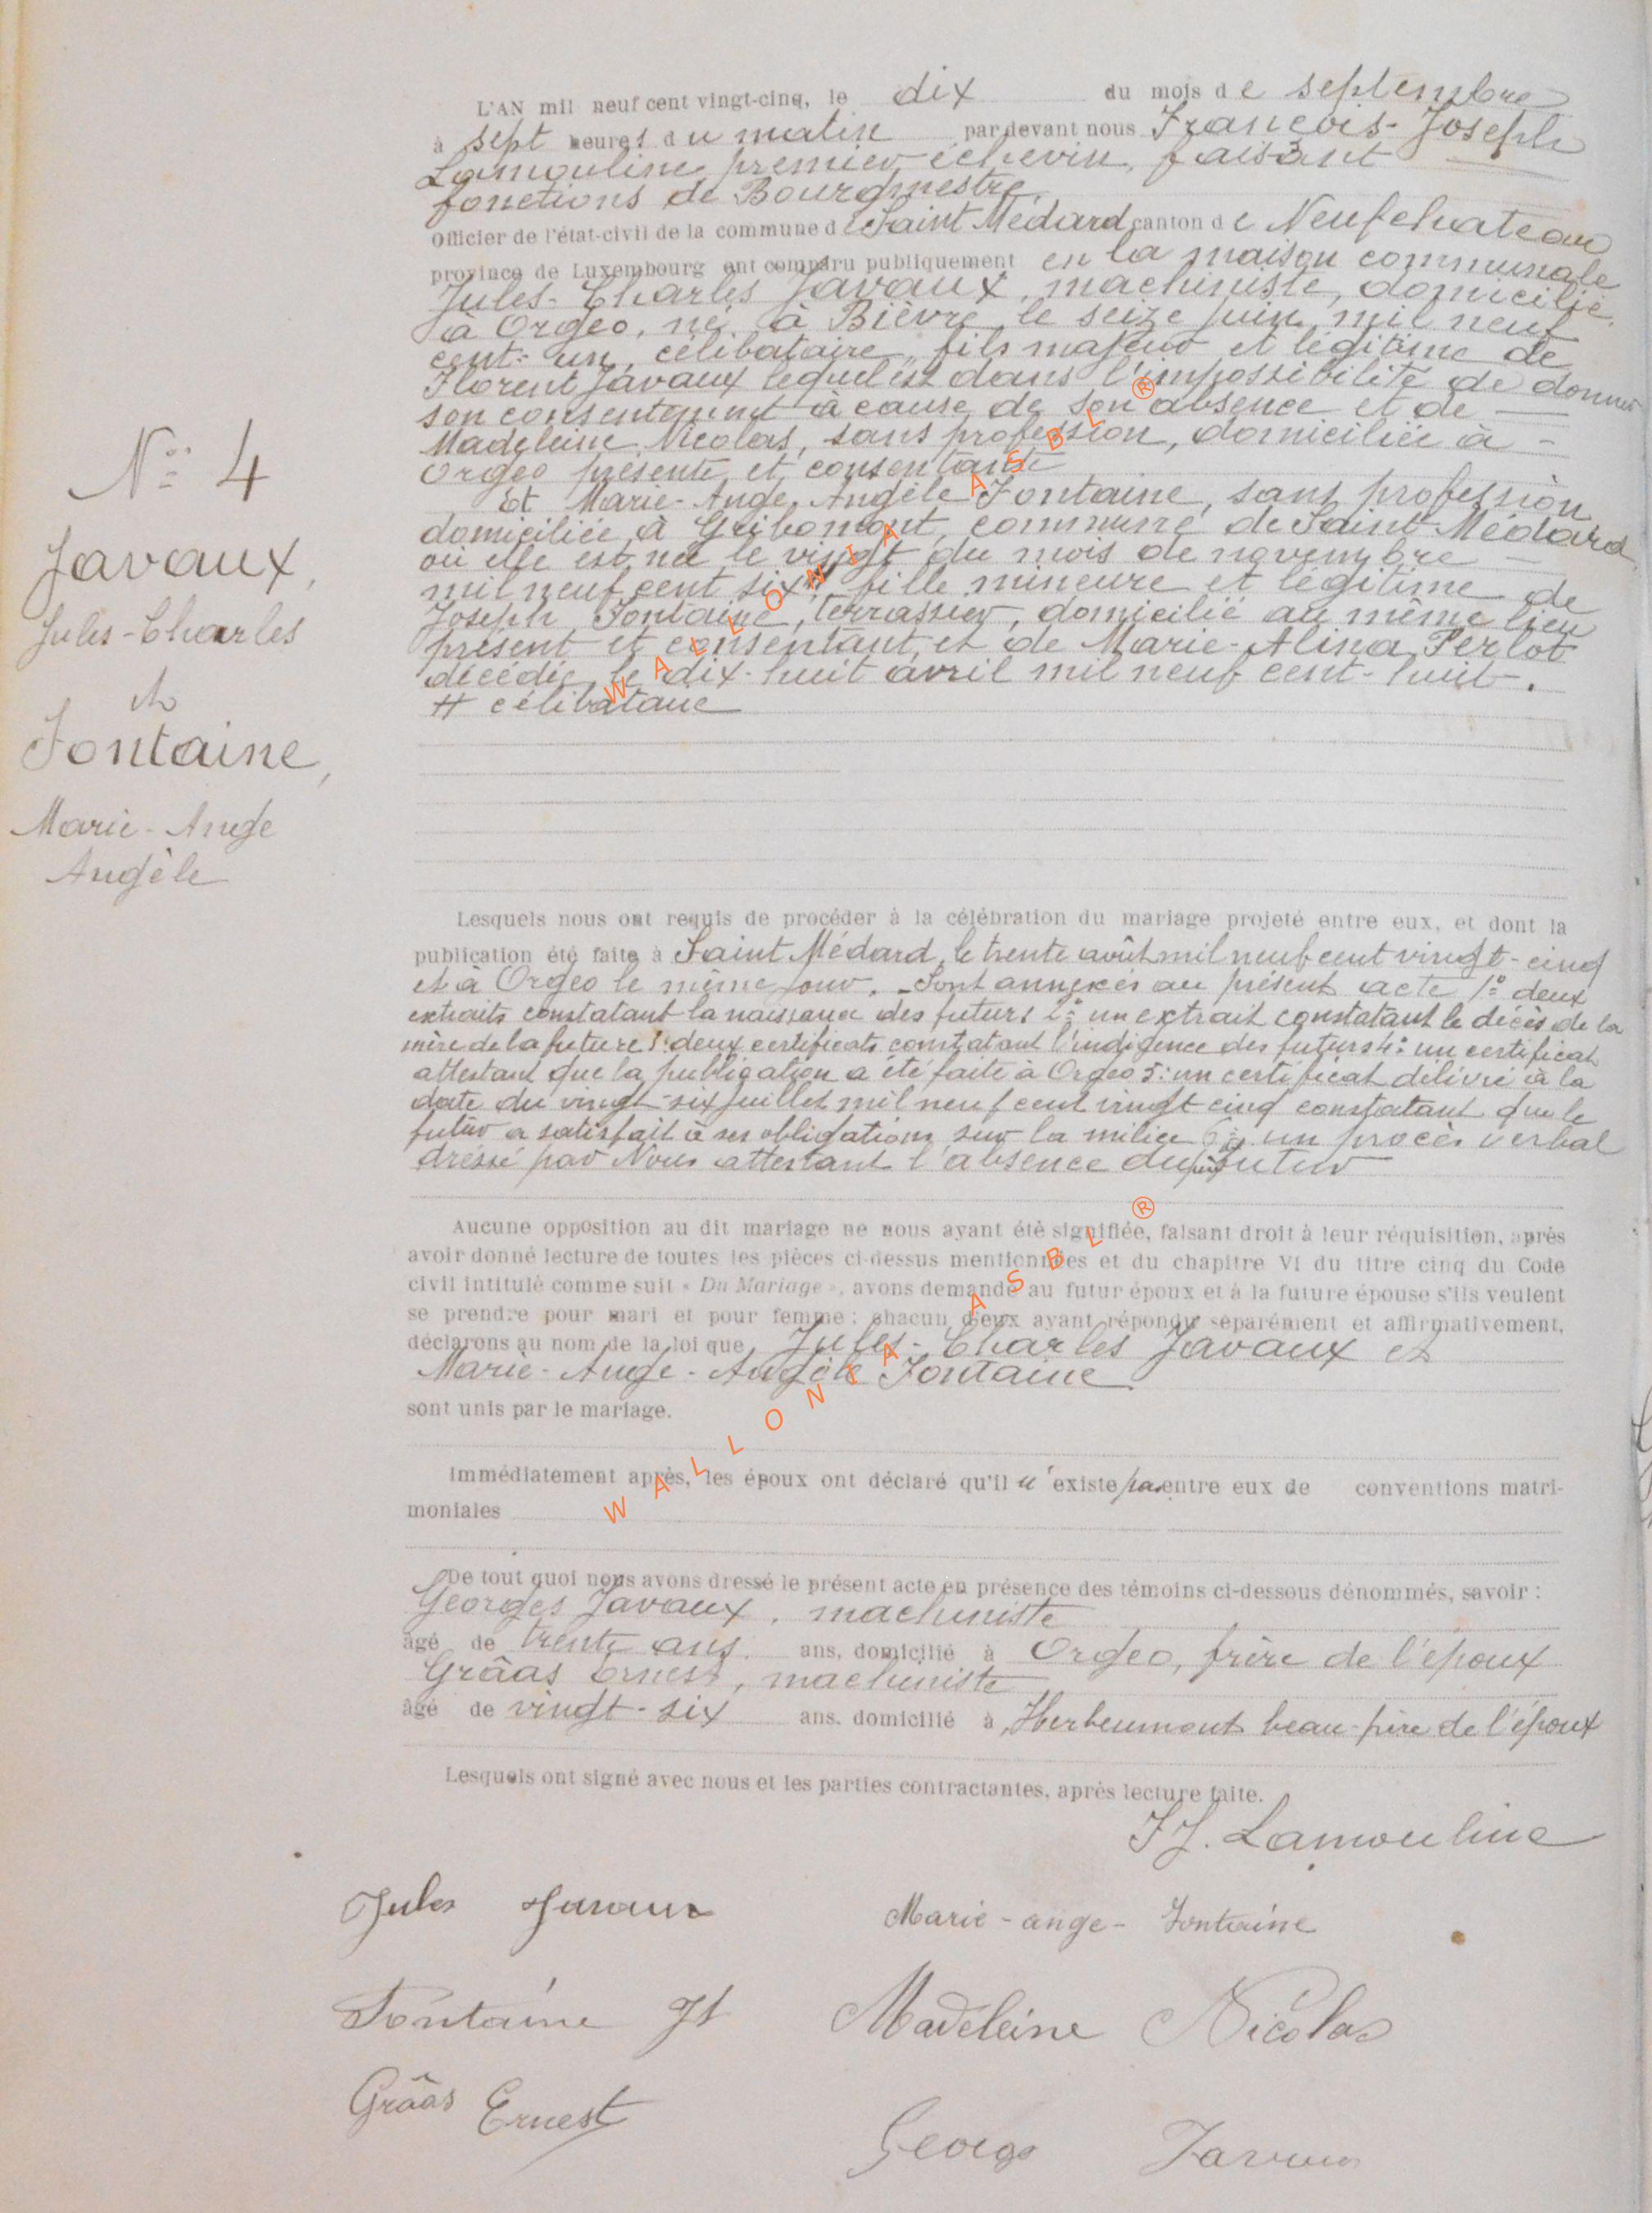 N° 4
Javaux,
Jules-Charles
&
Fontaine,
Marie-Ange
Angèle
L'AN mil neuf cent vingt-cinq, le dix du mois de septembre
à sept heures du matin par devant nous François-Joseph
Lamouline premier échevin, faisant
fonctions de Bourgmestre
Officier de l'état-civil de la commune de Saint Médard canton de Neufchateau
province de Luxembourg ont comparu publiquement en la maison communale
Jules-Charles Javaux, machiniste, domicilié
à Orgeo, né à Bièvre le seize juin mil neuf
cent-un, célibataire, fils majeur et légitime de
Florent Javaux lequel est dans l'impossibilité de donner
son consentement à cause de son absence et de
Madeleine Nicolas, sans profession, domiciliée à
Orgeo présente et consentante
Et Marie-Ange Angèle Fontaine, sans profession
domiciliée à Gribomont, commune de Saint-Médard
où elle est née le vingt du mois de novembre
mil neuf cent six # fille mineure et légitime de
Joseph Fontaine, terrassier, domicilié au même lieu
présent et consentant, et de Marie-Alina Perlot
décédée le dix-huit avril mil neuf cent-huit.
# célibataire
Lesquels nous ont requis de procéder à la célébration du mariage projeté entre eux, et dont la
publication été faite à Saint Médard, le trente août mil neuf cent vingt-cinq
et à Orgeo le même jour. - Sont annexés au présent acte 1° deux
extraits constatant la naissance des futurs 2° un extrait constatant le décès de la
mère de la future 3° deux certificats constatant l'indigence des futurs 4° un certificat
attestant que la publication a été faite à Orgeo 5° un certificat délivré à la
date du vingt-six juillet mil neuf cent vingt cinq constatant que le
futur a satisfait à ses obligations sur la milice 6° un procès verbal
dressé par Nous attestant l'absence du père futur
Aucune opposition au dit mariage ne nous ayant été signifiée, faisant droit à leur réquisition, après
avoir donné lecture de toutes les pièces ci-dessus mentionnées et du chapitre VI du titre cinq du Code
civil intitulé comme suit « Du Mariage », avons demandé au futur époux et à la future épouse s'ils veulent
se prendre pour mari et pour femme : chacun d'eux ayant répondu séparément et affirmativement,
déclarons au nom de la loi que Jules-Charles Javaux et
Marie-Ange-Angèle Fontaine
sont unis par le mariage.
Immédiatement après, les époux ont déclaré qu'il n'existe pas entre eux de conventions matri-
moniales
De tout quoi nous avons dressé le présent acte en présence des témoins ci-dessous dénommés, savoir :
Georges Javaux, machiniste
âgé de trente ans. ans, domicilié à Orgeo, frère de l'époux
Grâas Ernest, machiniste
âgé de vingt-six ans. domicilié à Herbeumont beau-frère de l'époux
Lesquels ont signé avec nous et les parties contractantes, après lecture faite.
F J. Lamouline
Jules Javaux Marie-ange- Fontaine
Fontaine Jh Madeleine Nicolas
Grâas Ernest
George Javaux
WALLONIA ASBL ®
WALLONIA ASBL ®